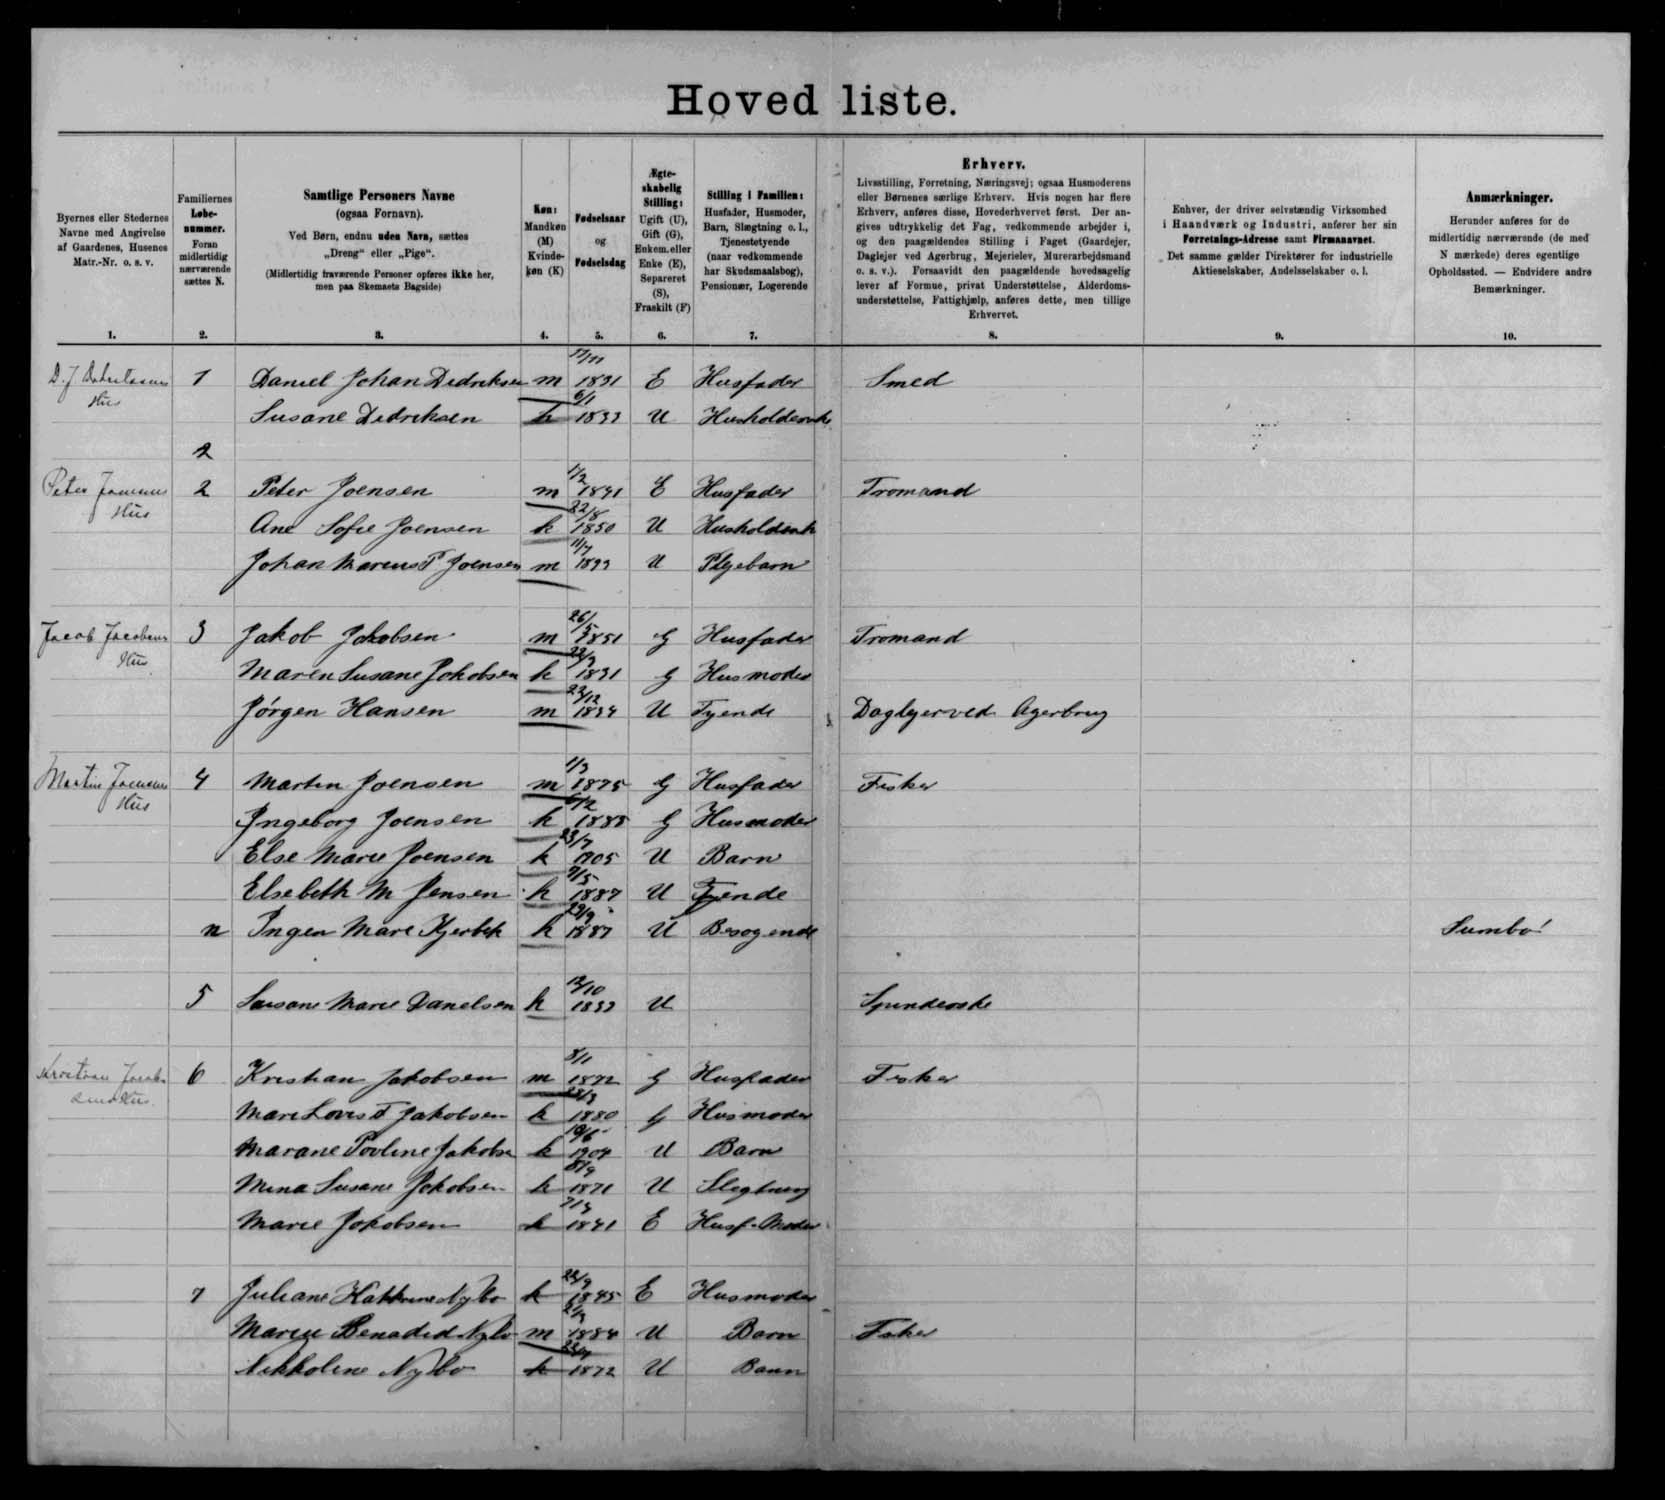 Hoved liste.
Byernes eller Stedernes Navne med Angivelse af Gaardenes, Husenes Matr.-Nr. o. s. v.
Familiernes Løbe-nummer. Foran midlertidig nærværende sættes N.
Samtlige Personers Navne
(ogsaa Fornavn).
Ved Børn, endnu uden Navn, sættes
„Dreng“ eller „Pige“.
(Midlertidig fraværende Personer opføres ikke her,
men paa Skemaets Bagside)
Køn: Mandkøn (M) Kvinde-køn (K)
Fødselsaar og Fødselsdag
Ægte-skabelig Stilling: Ugift (U), Gift (G), Enkem. eller Enke (E), Separeret (S), Fraskilt (F)
Stilling i Familien: Husfader, Husmoder, Barn, Slægtning o. l., Tjenestetyende (naar vedkommende har Skudsmaalsbog), Pensionær, Logerende
Erhverv.
Livsstilling, Forretning, Næringsvej; ogsaa Husmoderens
eller Børnenes særlige Erhverv. Hvis nogen har flere
Erhverv, anføres disse, Hovederhvervet først. Der an-
gives udtrykkelig det Fag, vedkommende arbejder i,
og den paagældendes Stilling i Faget (Gaardejer,
Daglejer ved Agerbrug, Mejerielev, Murerarbejdsmand
o. s. v.). Forsaavidt den paagældende hovedsagelig
lever af Formue, privat Understøttelse, Alderdoms-
understøttelse, Fattighjælp, anføres dette, men tillige
Erhvervet.
Enhver, der driver selvstændig Virksomhed
i Haandværk og Industri, anfører her sin
Forretnings-Adresse samt Firmanavnet.
Det samme gælder Direktører for industrielle
Aktieselskaber, Andelsselskaber o. l.
Anmærkninger.
Herunder anføres for de
midlertidig nærværende (de med
N mærkede) deres egentlige
Opholdssted. — Endvidere andre
Bemærkninger.
1. 2. 3. 4. 5. 6. 7. 8. 9. 10.
1 Daniel Johan Didriksen m E Husfader Smed
Hus
Susane Didriksen k U
2
Peter Joensens 2 Peter Joensen m 1/2 E Husfader Tromand
Hus
Ane Sofie Joensen k 22/8 1850 U
Johan Marius F Joensen m 11/7 U Plejebarn
Jacob Jacobsens 3 Jakob Jakobsen m 26/5 1851 G Husfader Tromand
Hus
Maren Susane Jakobsen k G Husmoder
Jørgen Hansen m U Tyende Daglejer ved Agerbrug
Martin Joensens 4 Martin Joensen m 1/3 1875 G Husfader Fisker
Hus
Ingeborg Joensen k G Husmoder
Else Marie Joensen k 23/7 1905 U Barn
Elsebeth M Jensen k 1887 U Tyende
n k U Besøgende Sumbø
5 Susane Marie Danielsen k U Spinderske
6 Kristian Jakobsen m 8/1 1872 G Husfader Fisker
k 1880 G Husmoder
k 1904 U Barn
Mina Susane Jakobsen k 1871 U Slegtning
Marie Jakobsen k E Husf. Moder
7 k 1845 E Husmoder
m 1884 U Barn Fisker
Nikkoline Nybo k 1872 U Barn